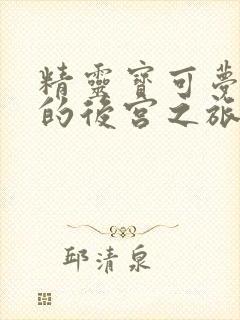 精靈寶可夢
的後宮之旅
邱清泉